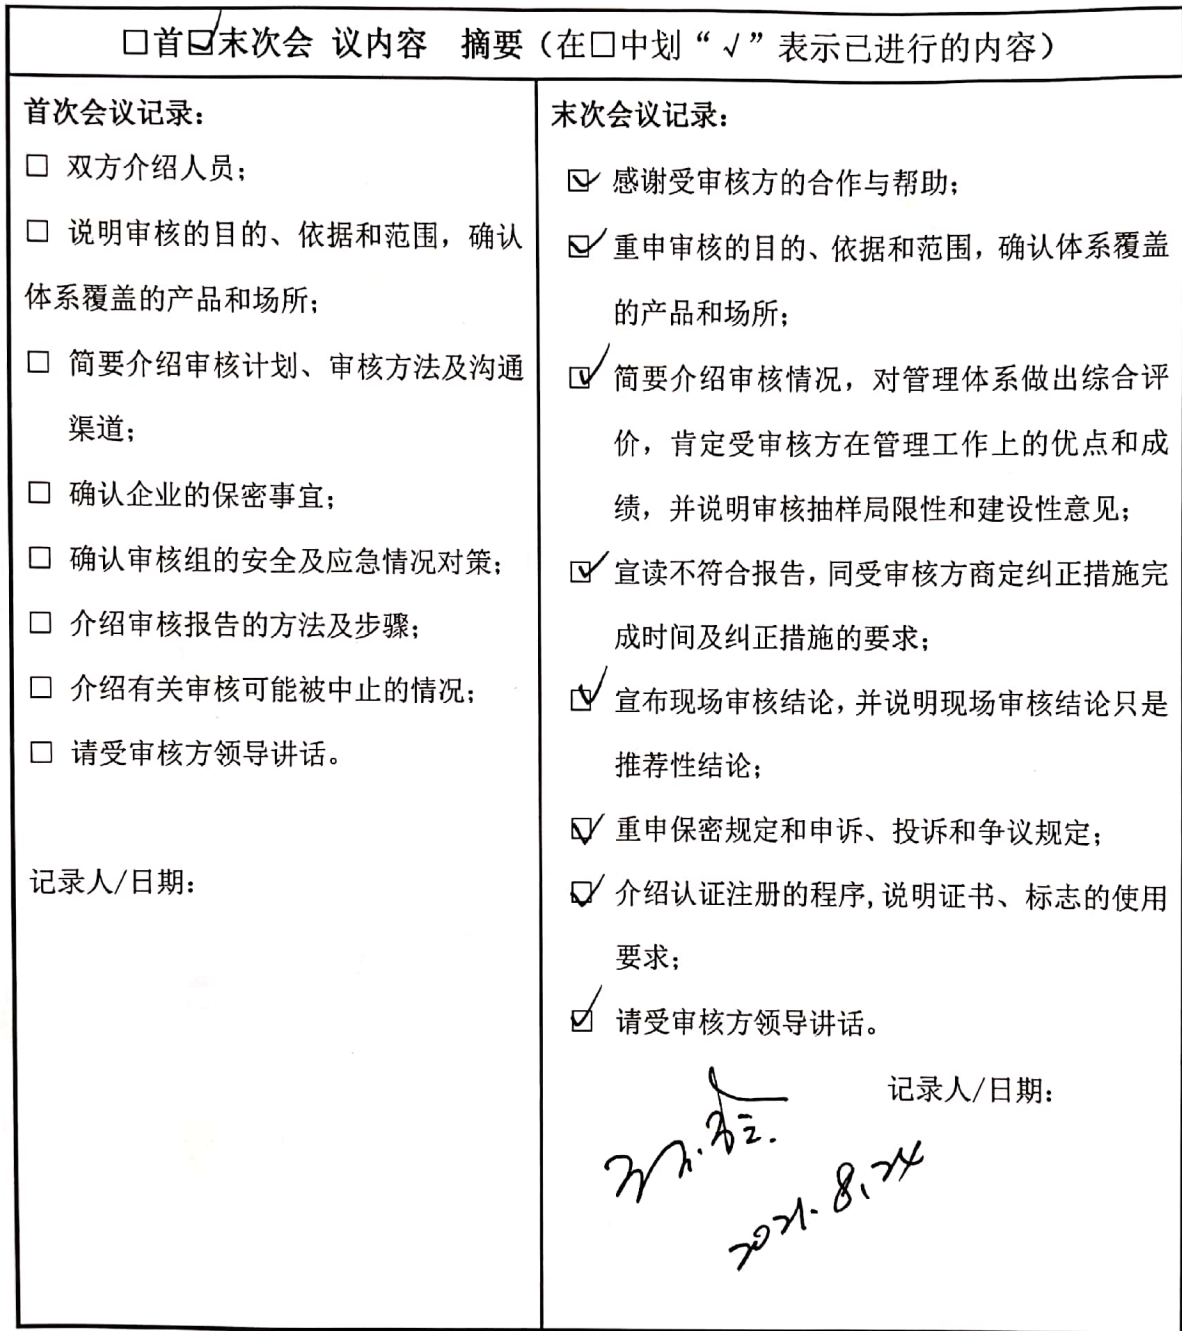 □首☑末次会 议内容 摘要（在□中划“√”表示已进行的内容）
首次会议记录：
□ 双方介绍人员；
□ 说明审核的目的、依据和范围，确认
体系覆盖的产品和场所；
□ 简要介绍审核计划、审核方法及沟通
渠道；
□ 确认企业的保密事宜；
□ 确认审核组的安全及应急情况对策；
□ 介绍审核报告的方法及步骤；
□ 介绍有关审核可能被中止的情况；
□ 请受审核方领导讲话。
记录人/日期：
末次会议记录：
☑ 感谢受审核方的合作与帮助；
☑ 重申审核的目的、依据和范围，确认体系覆盖
的产品和场所；
☑ 简要介绍审核情况，对管理体系做出综合评
价，肯定受审核方在管理工作上的优点和成
绩，并说明审核抽样局限性和建设性意见；
☑ 宣读不符合报告，同受审核方商定纠正措施完
成时间及纠正措施的要求；
☑ 宣布现场审核结论，并说明现场审核结论只是
推荐性结论；
☑ 重申保密规定和申诉、投诉和争议规定；
☑ 介绍认证注册的程序,说明证书、标志的使用
要求；
☑ 请受审核方领导讲话。
记录人/日期：
2021.8.24